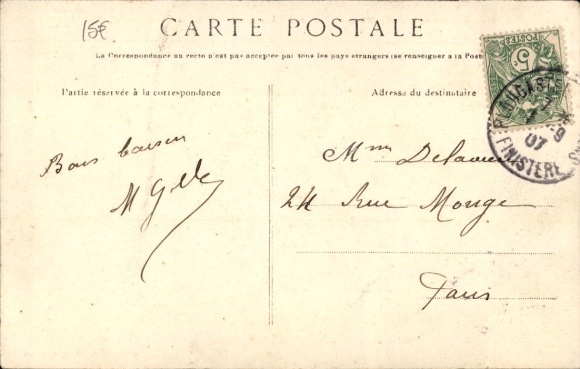 15€
CARTE POSTALE
La Correspondance au recto n'est pas acceptée par tous les pays étrangers (se renseigner à la Poste
Partie réservée à la correspondance
Adresse du destinataire
POSTES
5
07
FINISTERE
Bons baisers
M
Mme
24 Rue Monge
Paris